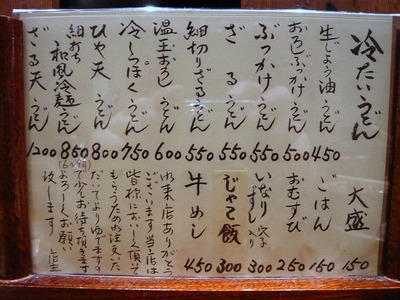 冷たいうどん
生じょう油うどん 450
おろしぶっかけうどん 500
ぶっかけうどん 550
ざるうどん 550
細切りざるうどん 550
温玉おろしうどん 600
冷しっぽくうどん 750
ひや天うどん 800
細打ち和風冷麺うどん 850
ざる天うどん 1200
大盛 150
ごはん 150
おむすび 250
いなりずし 穴子入り 300
じゃこ飯 300
牛めし 450
御来店ありがとう
ございます 当店は
皆様においしく頂いて
もらうため 注文いた
だいてよりゆでますの
で少々お待ち頂きます
よろしくお願い
致します 店主